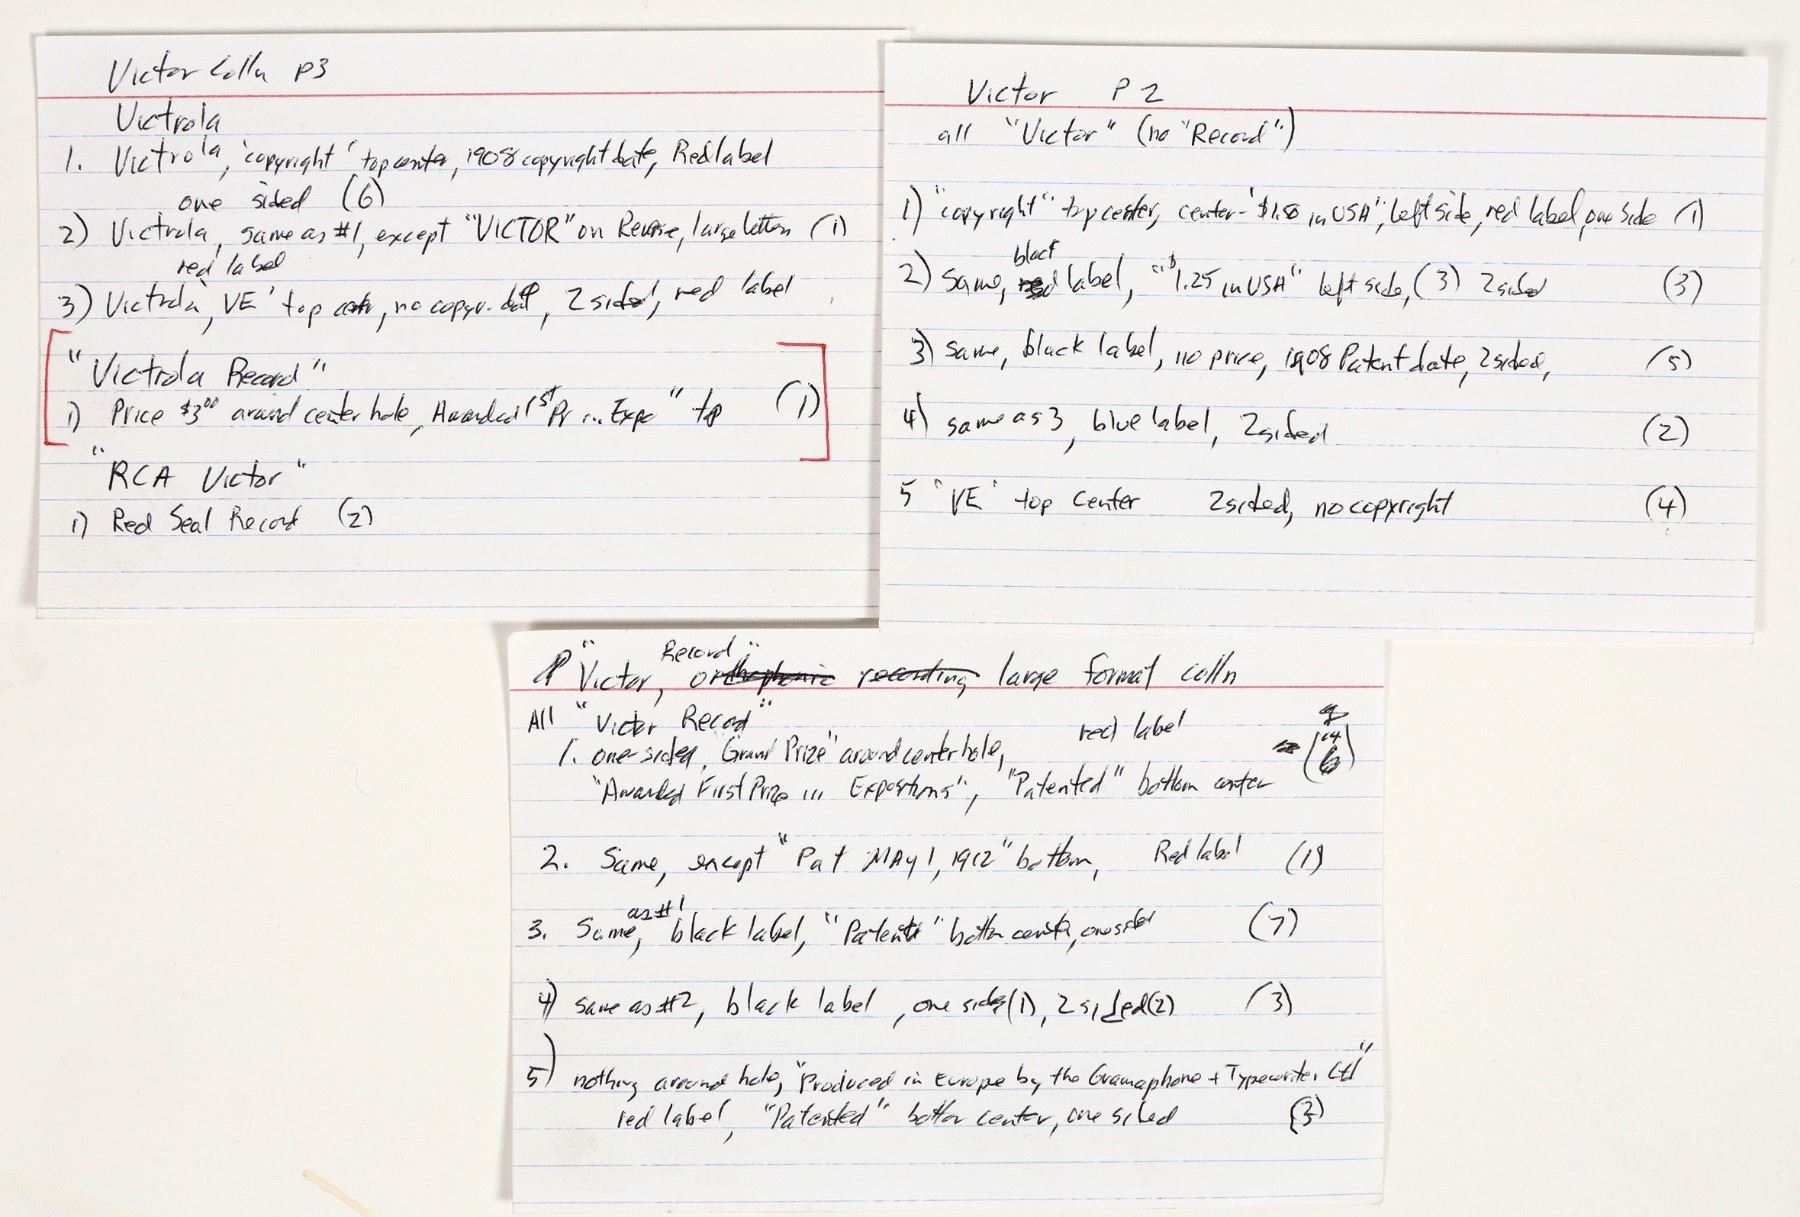 Victor Colln P3
Victrola
1. Victrola, "copyright" top center, 1908 copyright date, Red label
one sided (6)
2) Victrola, same as #1, except "VICTOR" on Reverse, large letters (1)
red label
3) Victrola, VE' top cntr, no copyr. date, 2 sided, red label
"Victrola Record"
1) Price $3.00 around center hole, Awarded 1st Pr ... Expo" top (1)
"RCA Victor"
1) Red Seal Record (2)
Victor P 2
all "Victor" (no "Record")
1) "copyright" top center, center - "$1.50 in USA", left side, red label, one side (1)
black
2) same, red label, "$1.25 in USA" left side, (3) 2 sided (3)
3) same, black label, no price, 1908 Patent date, 2 sided, (5)
4) same as 3, blue label, 2 sided (2)
5 "VE" top center 2 sided, no copyright (4)
Record"
"Victor, orthophonic recording large format colln
All "Victor Record"
red label
1. one-sided, Grand Prize" around center hole, (14
"Awarded First Prize ... Expositions", "Patented" bottom center
2. Same, except "Pat MAY 1, 1912" bottom, Red label (1)
as #1
3. Same, black label, "Patented" bottom center, one sided (7)
4) same as #2, black label, one sided (1), 2 sided (2) (3)
5) nothing around hole, "Produced in Europe by the Gramaphone + Typewriter Ltd"
red label, "Patented" bottom center, one sided (3)